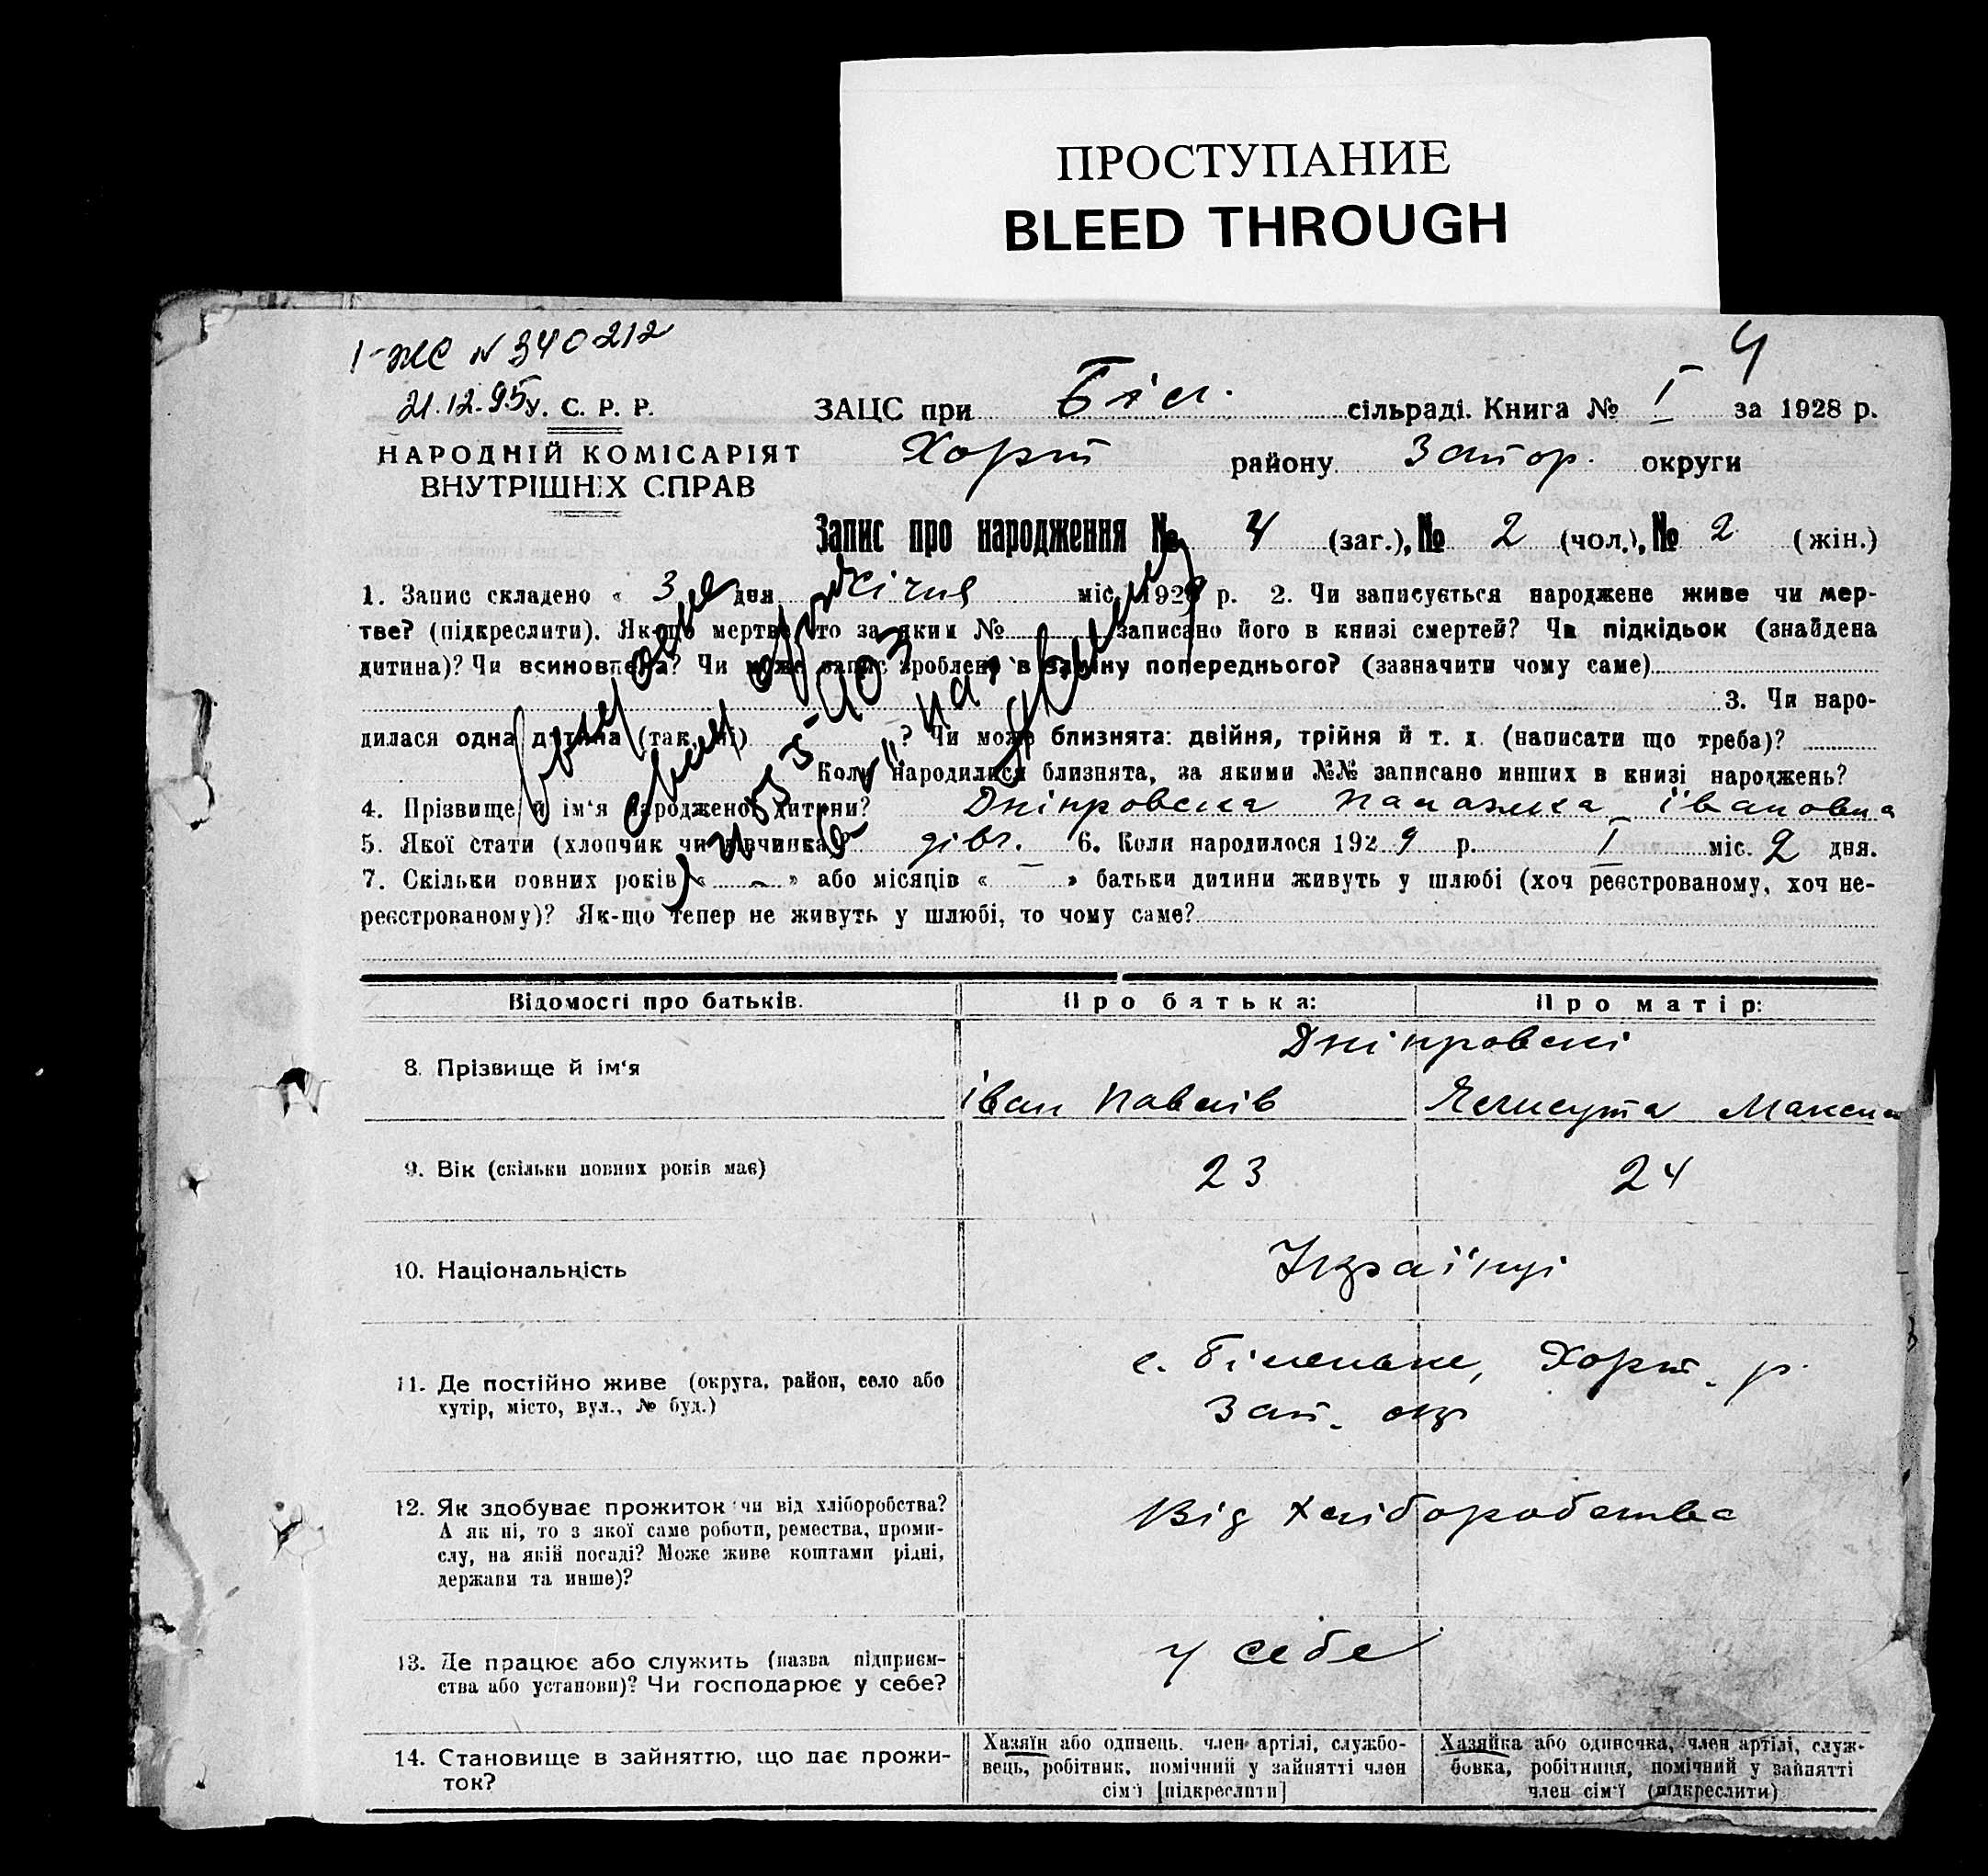 ПРОСТУПАНИЕ
BLEED THROUGH
I-ЖС N 340212
21.12.95
4
У. С. Р. Р.
НАРОДНІЙ КОМІСАРІЯТ
ВНУТРІШНІХ СПРАВ
ЗАЦС при Біл. сільраді. Книга № I за 1928 р.
Хорт району Запор. округи
Запис про народження № 4 (заг.), № 2 (чол.), № 2 (жін.)
1. Запис складено « 3 дня січня міс. 1929 р. 2. Чи записується народжене живе чи мер-
тве? (підкреслити). Як-що мертве, то за яким № записано його в книзі смертей? Чи підкідьок (знайдена
дитина)? Чи всиновлена? Чи може запис зроблено в заміну попереднього? (зазначити чому саме)
3. Чи наро-
дилася одна дитина (так, ні) ? Чи може близнята: двійня, трійня й т. д. (написати що треба)?
Коли народилися близнята, за якими №№ записано инших в книзі народжень?
4. Прізвище й ім‘я народженої дитини? Дніпровська Палажка Івановна
5. Якої стати (хлопчик чи дівчинка)? дівч. 6. Коли народилося 1929 р. I міс. 2 дня.
7. Скільки повних років « – » або місяців « – » батьки дитини живуть у шлюбі (хоч реєстрованому, хоч не-
реєстрованому)? Як-що тепер не живуть у шлюбі, то чому саме?
Відомості про батьків. Про батька: Про матір:
Дніпровські
8. Прізвище й ім‘я Іван Павлів Максим
9. Вік (скільки повних років має) 23 24
10. Національність Українці
11. Де постійно живе (округа, район, село або
хутір, місто, вул., № буд.)
с. Біленьке, Хорт. р.
Зап. окр
12. Як здобуває прожиток чи від хліборобства?
А як ні, то з якої саме роботи, ремества, проми-
слу, на якій посаді? Може живе коштами рідні,
держави та инше)?
Від хліборобства
13. Де працює або служить (назва підприєм-
ства або установи)? Чи господарює у себе?
у себе
14. Становище в зайняттю, що дає прожи-
ток?
Хазяїн або одинець, член артілі, службо-
вець, робітник, помічний у зайнятті член
сім‘ї [підкреслити]
Хазяйка або одиночка, член артілі, служ-
бовка, робітниця, помічний у зайнятті
член сім‘ї (підкреслити)